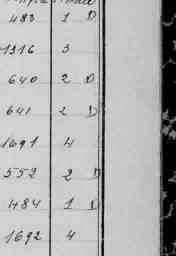 483 1 D
1316 3
640 2 D
641 2 D
1691 4
552 2 D
484 1 D
1692 4